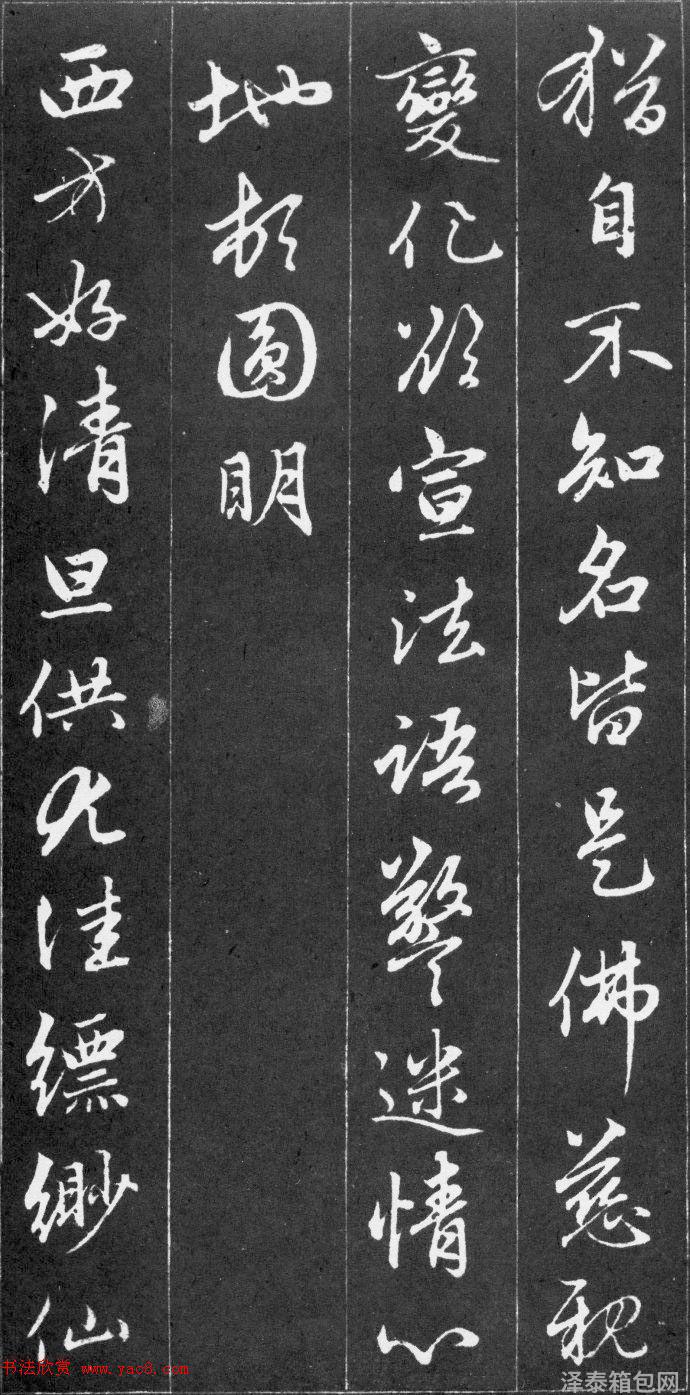 猶自不知名皆是佛慈親
變化欲宣法語警迷情心
地頓圓明
西方好清旦供尤佳縹緲仙
书法欣赏 www.yac8.com
泽泰箱包网